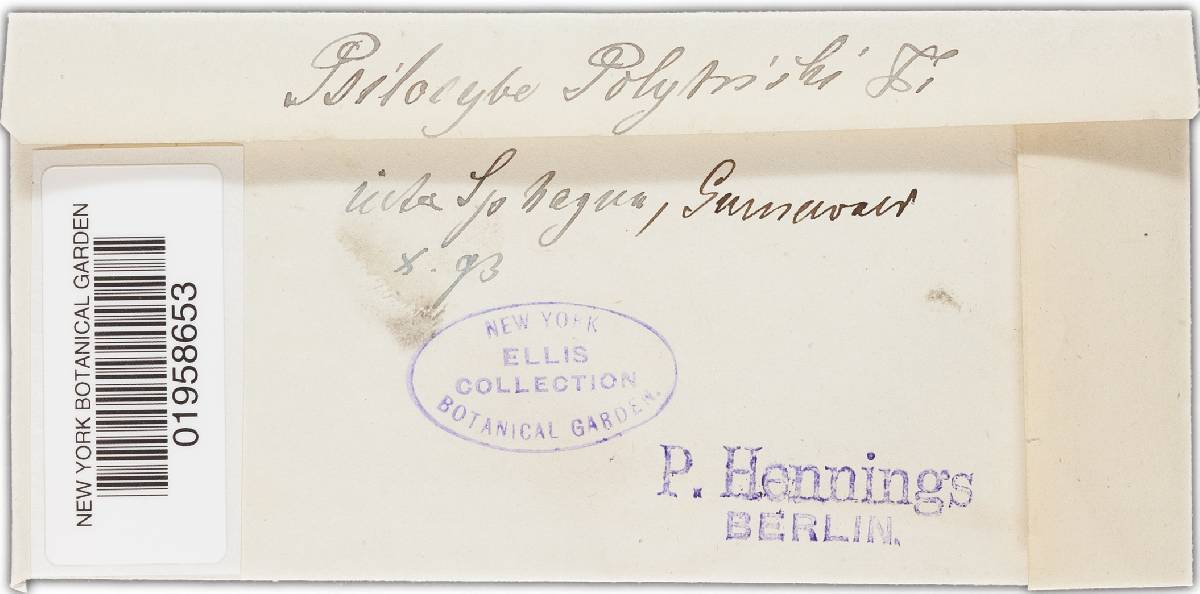 Psilocybe Polytrichi Fr
inter Sphagna, Grunewald
X. 93
NEW YORK BOTANICAL GARDEN
01958653
NEW YORK
ELLIS
COLLECTION
BOTANICAL GARDEN.
P. Hennings
BERLIN.